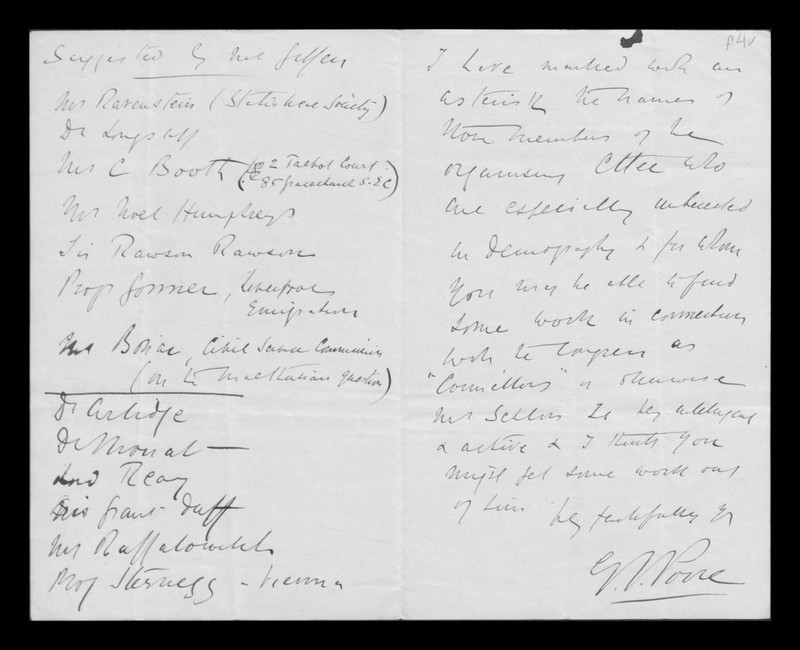 Suggested by Mr Giffen
Mr Ravenstein (Statistical Society)
Dr Longstaff
Mr C Booth (2 Talbot Court
85 Gracechurch S. EC)
Mr Noel Humphreys
Sir Rawson Rawson
Prof Gonner, Liverpool
Emigration
Mr Bonar, Civil Service Commission
(on the Malthusian question)
Dr Arlidge
Dr Mouat
Lord Reay
Grant Duff
Mr Raffalovich
Prof Sternegg - Vienna
p4v
I have marked with an
asterisk the names of
those members of the
organising Cttee who
are especially interested
in Demography & for whom
you may be able to find
some work in connection
with the Congress as
"Councillors" or otherwise
Mr Sellon is very intelligent
& active & I think you
might get some work out
of him
Very faithfully yrs
G.V. Poore